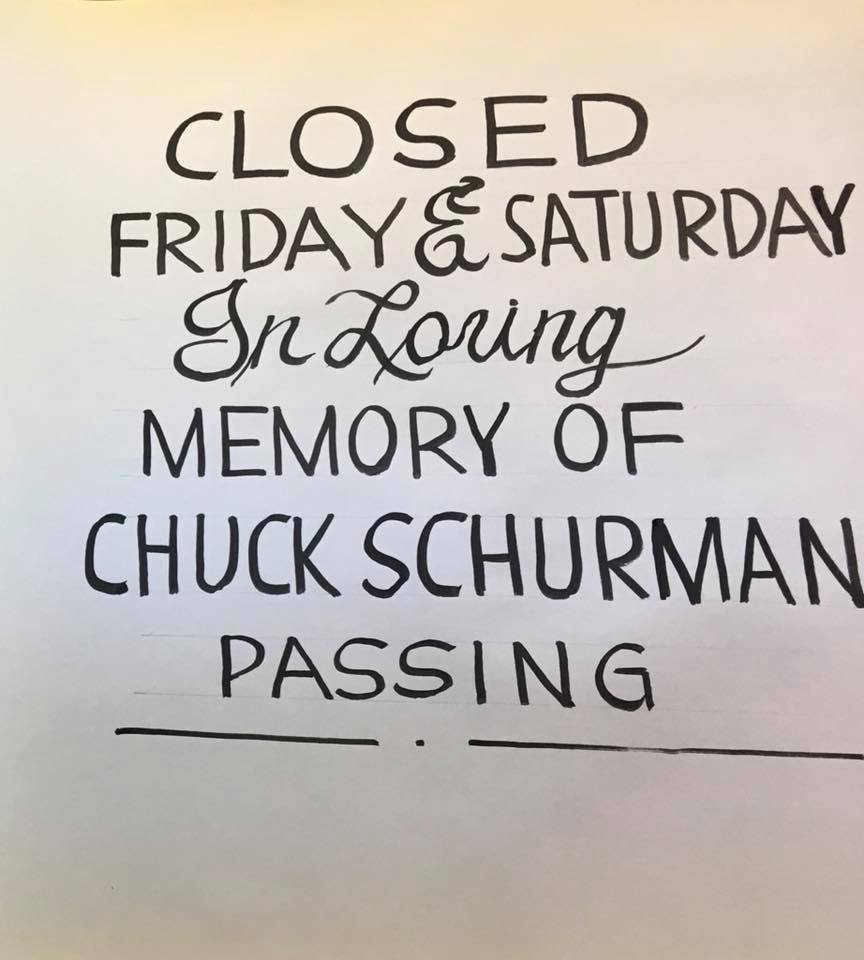 CLOSED
FRIDAY & SATURDAY
In Loving
MEMORY OF
CHUCK SCHURMAN
PASSING